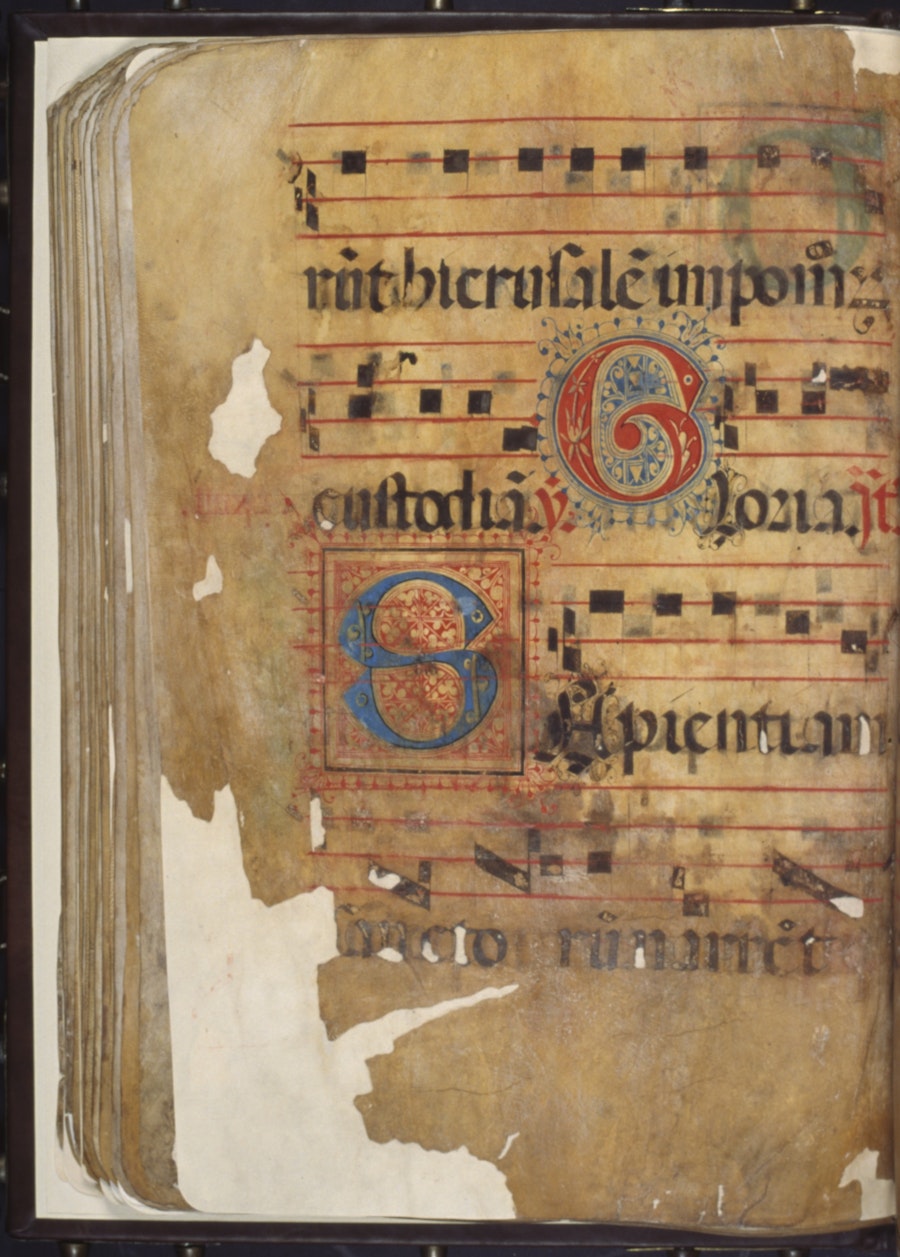 rūt hierusalē in pom̄
custodiā. ℣. Gloria. p̄t
SApientiam
sāncto rū narrēt